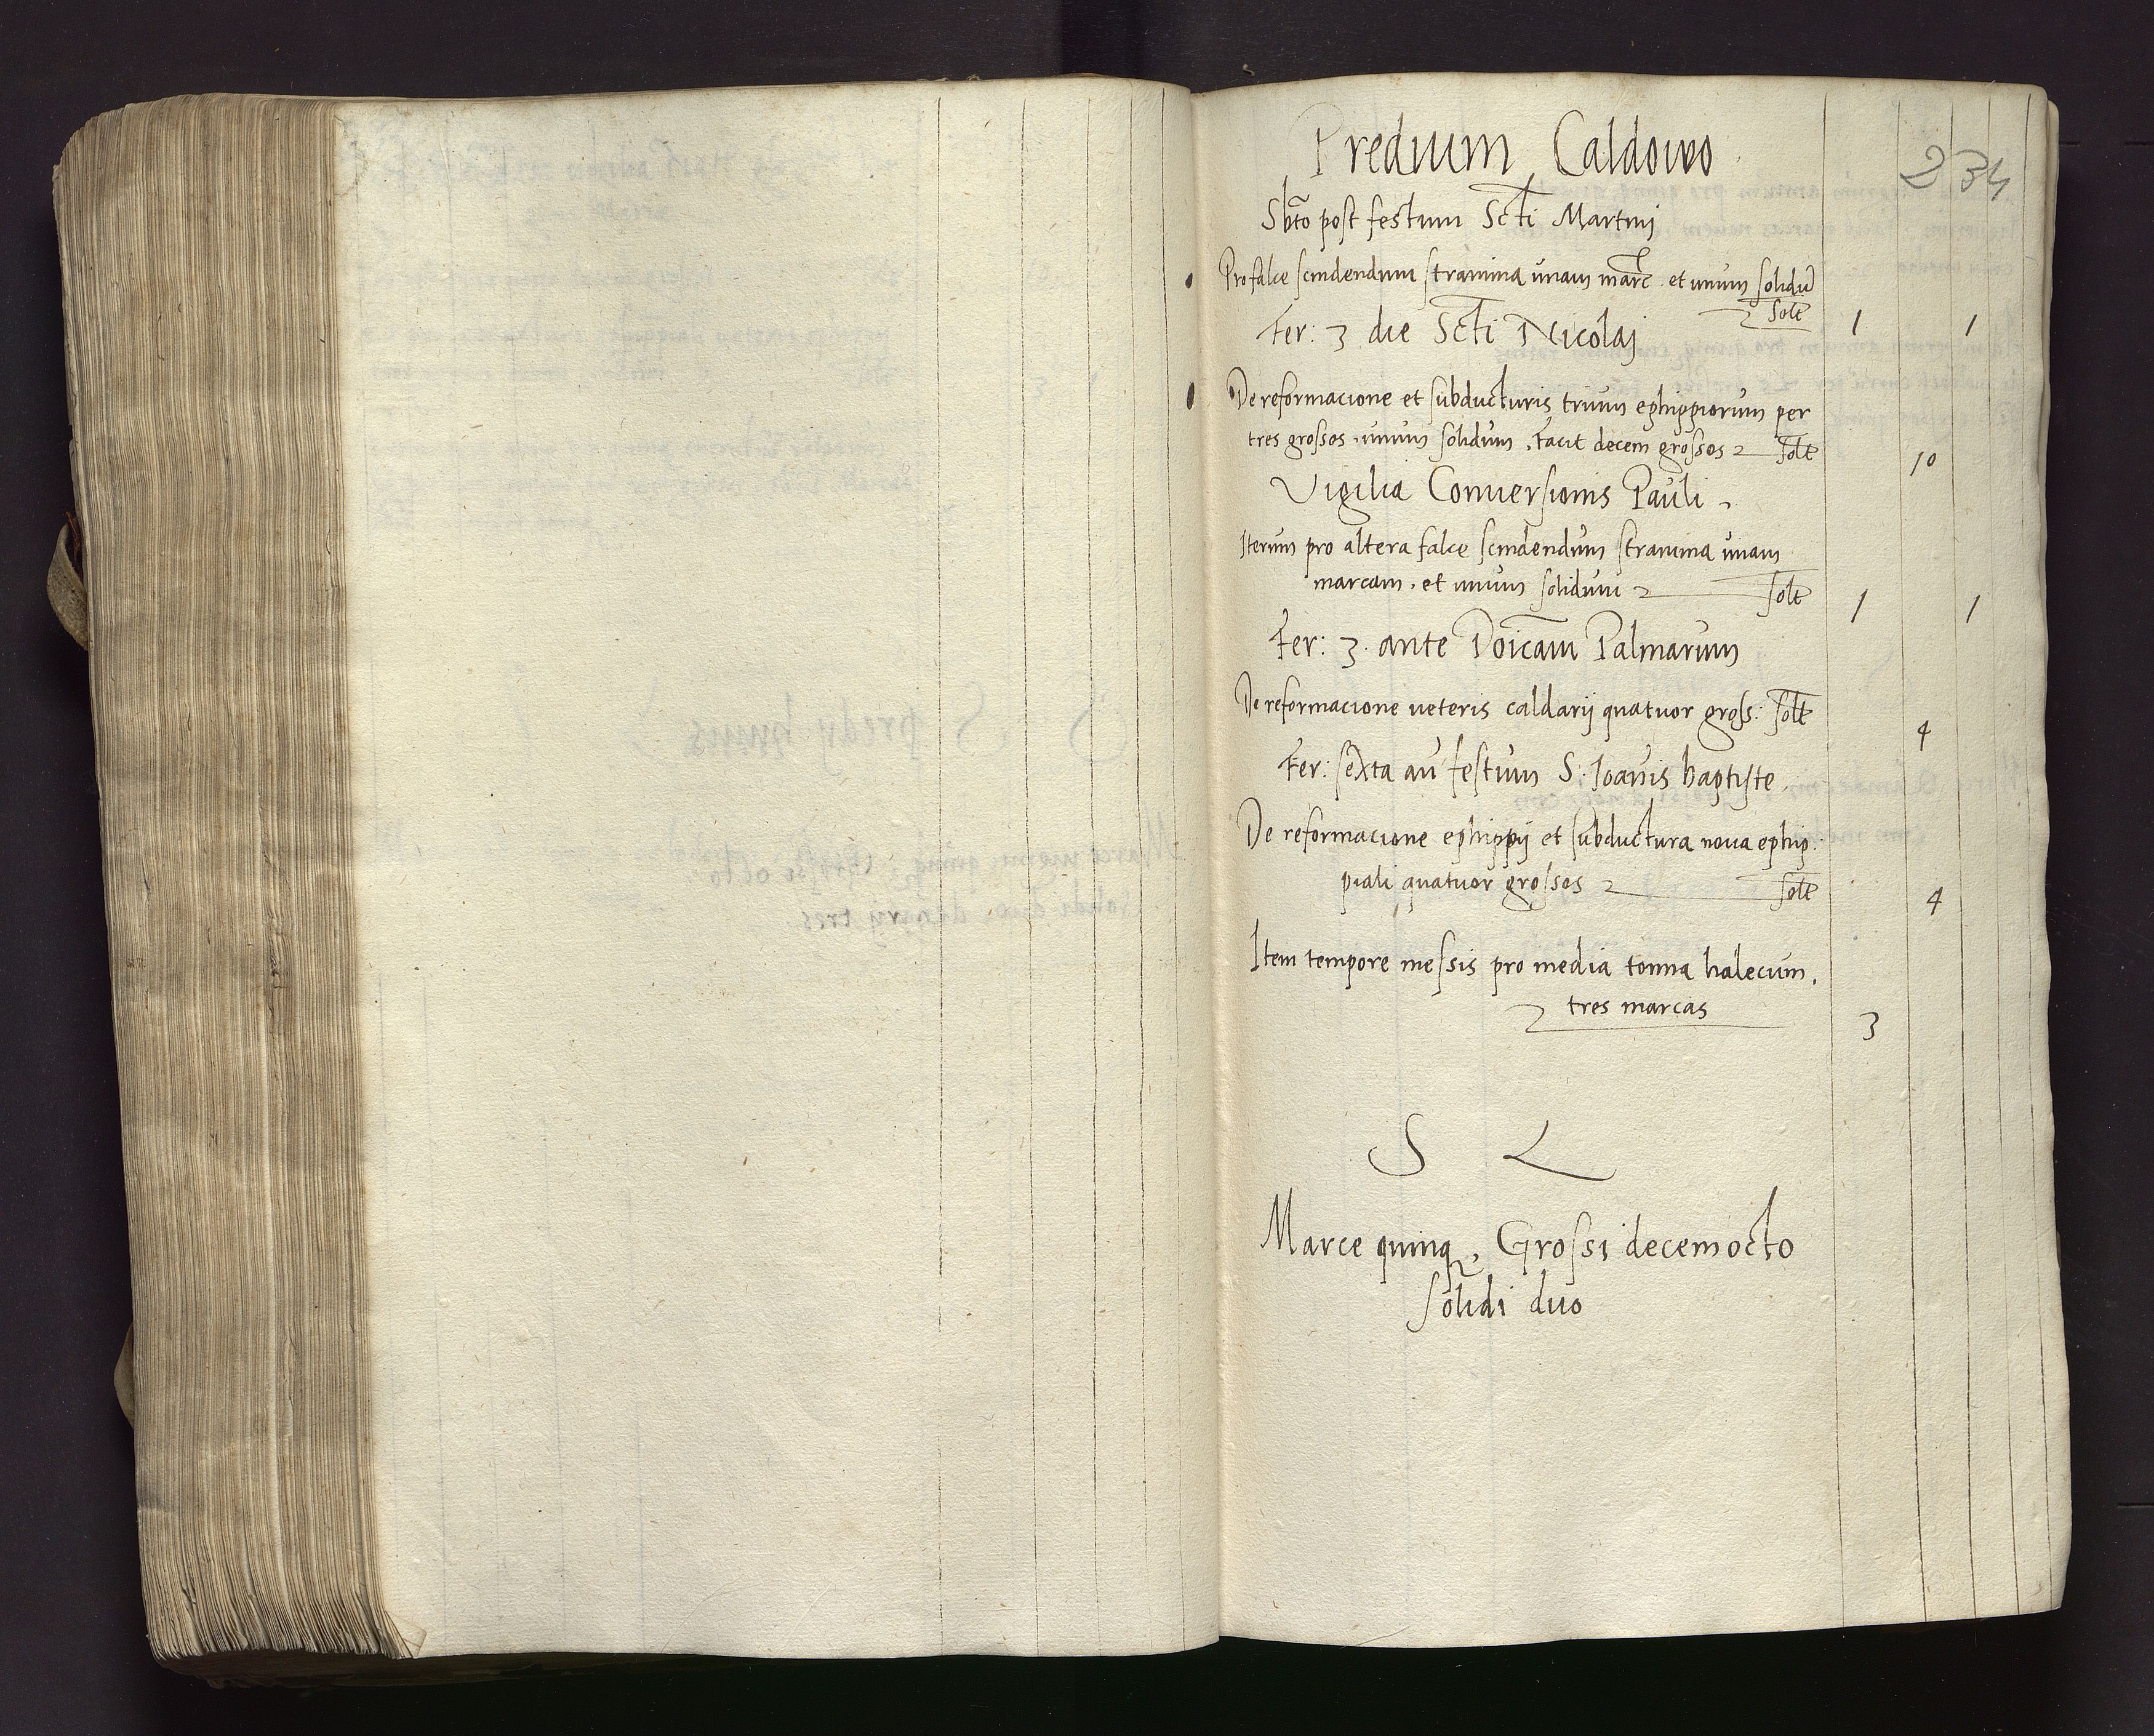 Predium Caldowo
234
Sbto post festum Scti Martini
Pro falce scindendum stramina unam marc. et unum solidu
solt 1 1
Fer: 3 die Scti Nicolaj
De reformacione et subducturis trium ephippiorum per
tres grossos, unum solidum, facit decem grossos solt 10
Vigilia Conversionis Pauli
Iterum pro altera falce scindendum stramina unam
marcam, et unum solidum solt 1 1
Fer: 3 ante Doicam Palmarum
De reformacione veteris caldarij quatuor gross: solt 4
Fer: sexta an festum S. Joanis baptiste
De reformacione ephippij et subductura nova ephip
piali quatuor grossos solt 4
Item tempore messis pro media tonna halecum,
tres marcas 3
S L
Marce quinq, Grossi decemocto
solidi duo